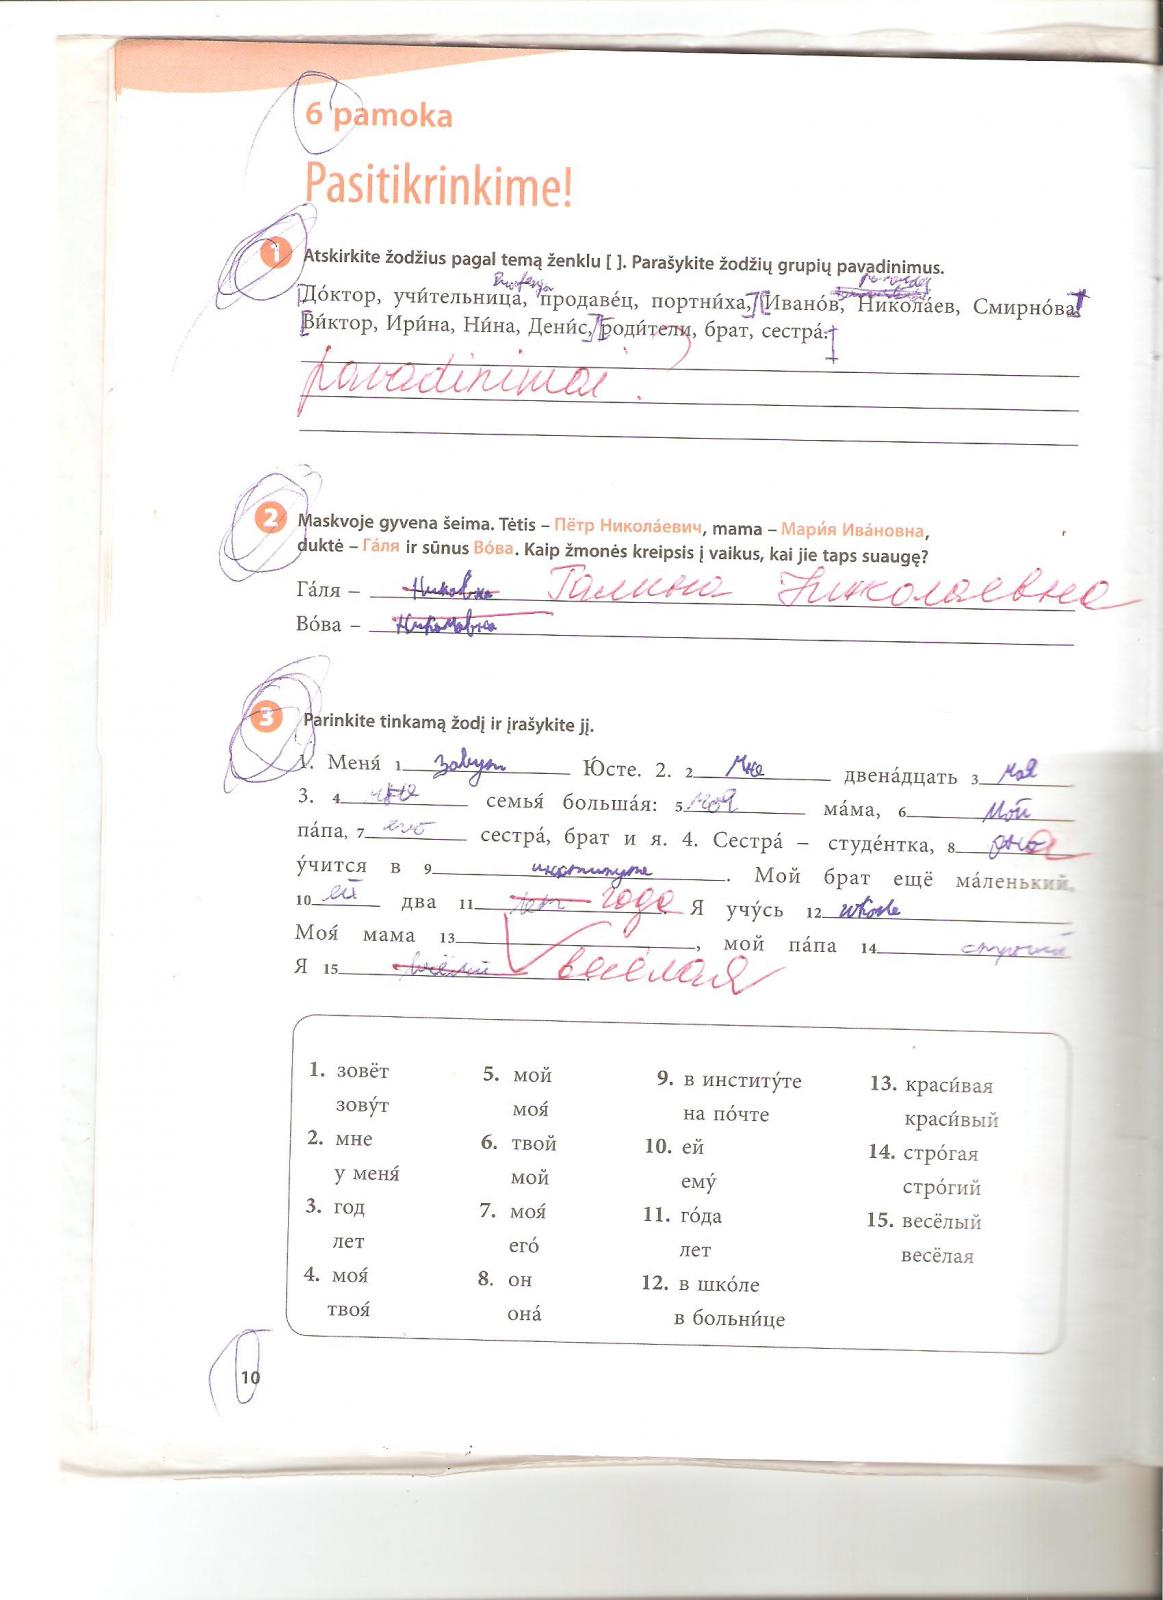 6 pamoka
Pasitikrinkime!
1 Atskirkite žodžius pagal temą ženklu [ ]. Parašykite žodžių grupių pavadinimus.
До́ктор, учи́тельница, продаве́ц, портни́ха,] [Ивано́в, Никола́ев, Смирно́ва]
[Ви́ктор, Ири́на, Ни́на, Дени́с,] [роди́тели, брат, сестра́.]
pavadinimai.
2 Maskvoje gyvena šeima. Tėtis – Пётр Никола́евич, mama – Мари́я Ива́новна,
duktė – Га́ля ir sūnus Во́ва. Kaip žmonės kreipsis į vaikus, kai jie taps suaugę?
Га́ля – Галина Николаевна
Во́ва –
3 Parinkite tinkamą žodį ir įrašykite jį.
1. Меня́ 1 зовут Ю́сте. 2. 2 Мне двена́дцать 3
3. 4 семья́ больша́я: 5 моя ма́ма, 6 мой
па́па, 7 его сестра́, брат и я. 4. Сестра́ – студе́нтка, 8 она
у́чится в 9 институте. Мой брат ещё ма́ленький,
10 ей два 11 лет года. Я учу́сь 12
Моя́ мама 13 , мой па́па 14 строгий
Я 15 весёлая
1. зовёт 5. мой 9. в институ́те 13. краси́вая
зову́т моя́ на по́чте краси́вый
2. мне 6. твой 10. ей 14. стро́гая
у меня́ мой ему́ стро́гий
3. год 7. моя́ 11. го́да 15. весёлый
лет его́ лет весёлая
4. моя́ 8. он 12. в шко́ле
твоя́ она́ в больни́це
10